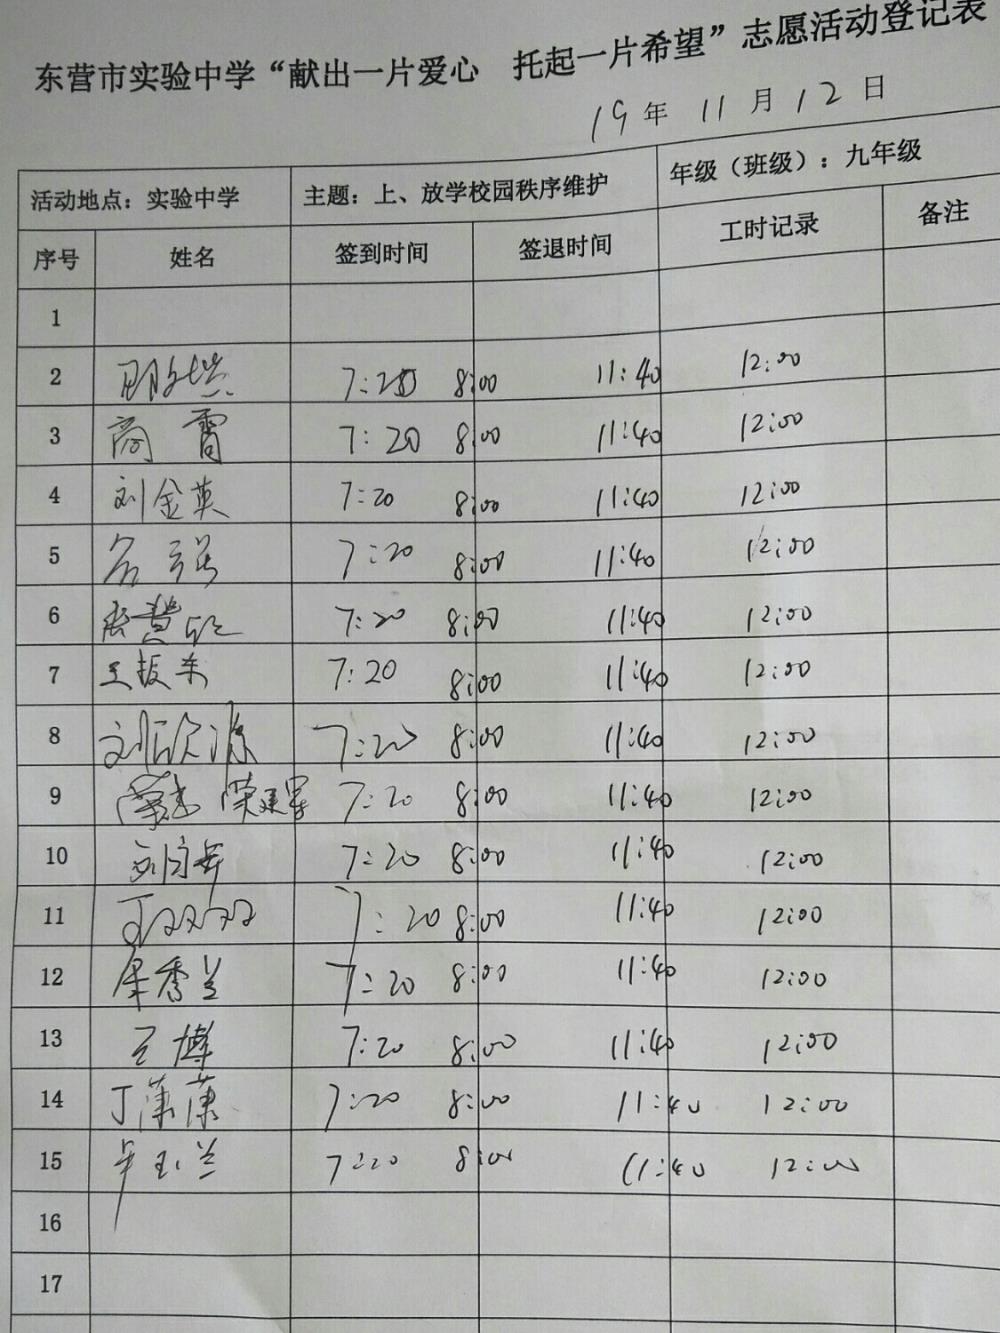 东营市实验中学“献出一片爱心 托起一片希望”志愿活动登记表
19年 11月 12日
活动地点：实验中学 主题：上、放学校园秩序维护 年级（班级）：九年级
序号 姓名 签到时间 签退时间 工时记录 备注
1
2 7:20 8:00 11:40 12:00
3 商霄 7:20 8:00 11:40 12:00
4 刘金英 7:20 8:00 11:40 12:00
5 7:20 8:00 11:40 12:00
6 7:20 8:00 11:40 12:00
7 王振东 7:20 8:00 11:40 12:00
8 7:20 8:00 11:40 12:00
9 荣建军 7:20 8:00 11:40 12:00
10 7:20 8:00 11:40 12:00
11 丁双双 7:20 8:00 11:40 12:00
12 7:20 8:00 11:40 12:00
13 王博 7:20 8:00 11:40 12:00
14 丁潇潇 7:20 8:00 11:40 12:00
15 玉兰 7:20 8:00 11:40 12:00
16
17